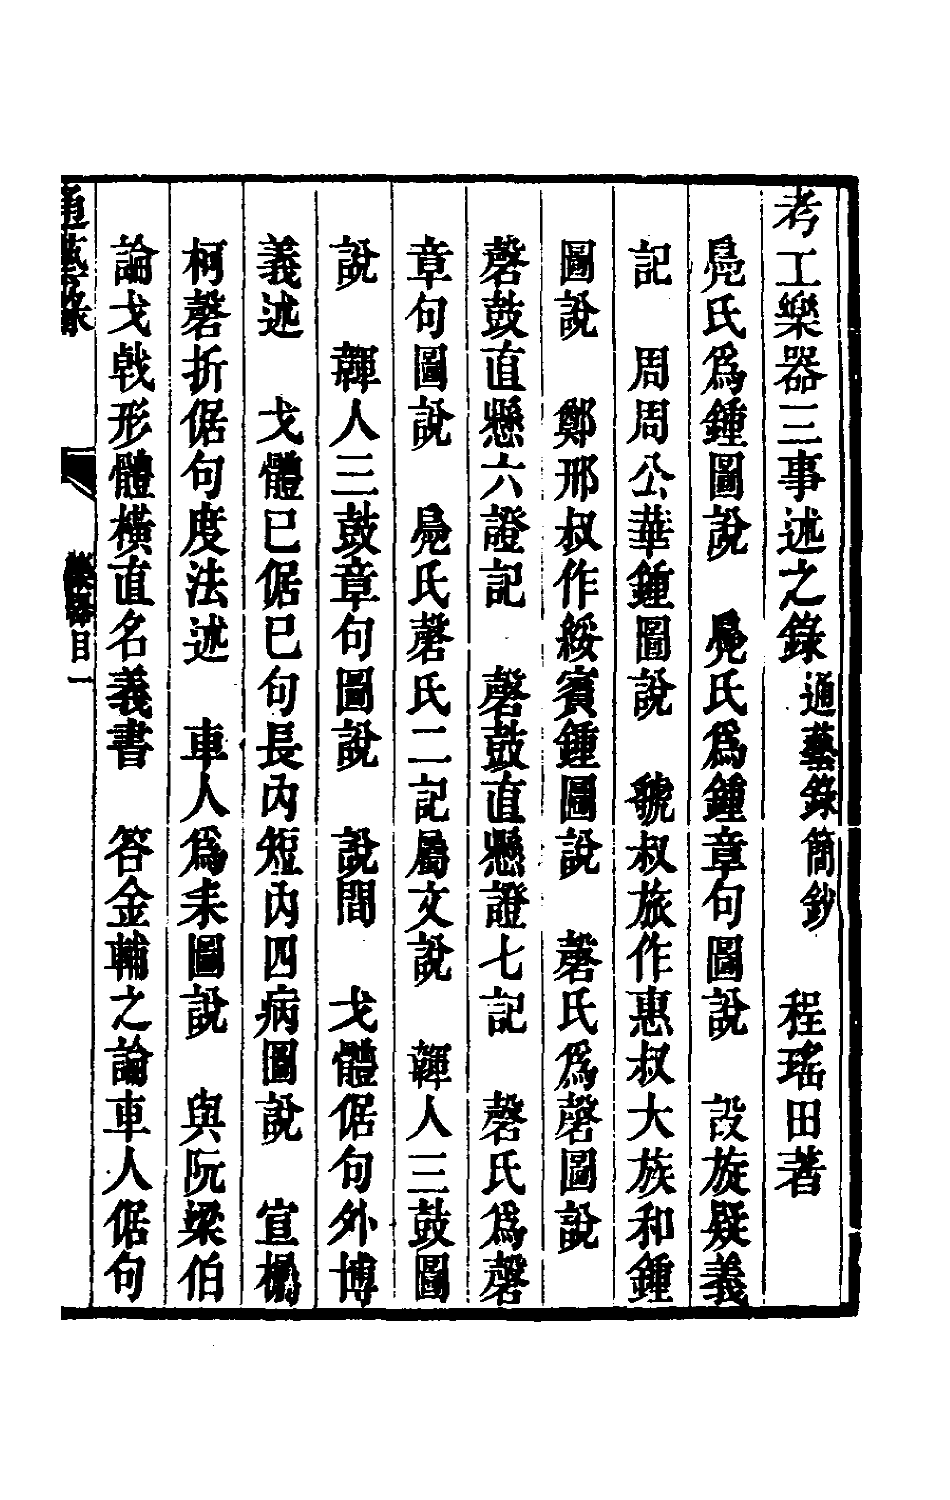 考工樂器三事述之錄通藝錄簡鈔　程瑤田著
鳧氏爲鍾圖說　鳧氏爲鍾章句圖說　設旋疑義
記　周周公華鍾圖說　虢叔旅作惠叔大族和鍾
圖說　鄭邢叔作綏賓鍾圖說　磬氏爲磬圖說
磬鼓直懸六證記　磬鼓直懸證七記　磬氏爲磬
章句圖說　鳧氏磬氏二記屬文說　韗人三鼓圖
說　韗人三鼓章句圖說　說間　戈體倨句外博
義述　戈體已倨已句長內短內四病圖說　宣欘
柯磬折倨句度法述　車人爲耒圖說　與阮梁伯
論戈戟形體橫直名義書　答金輔之論車人倨句
通藝錄　目　一